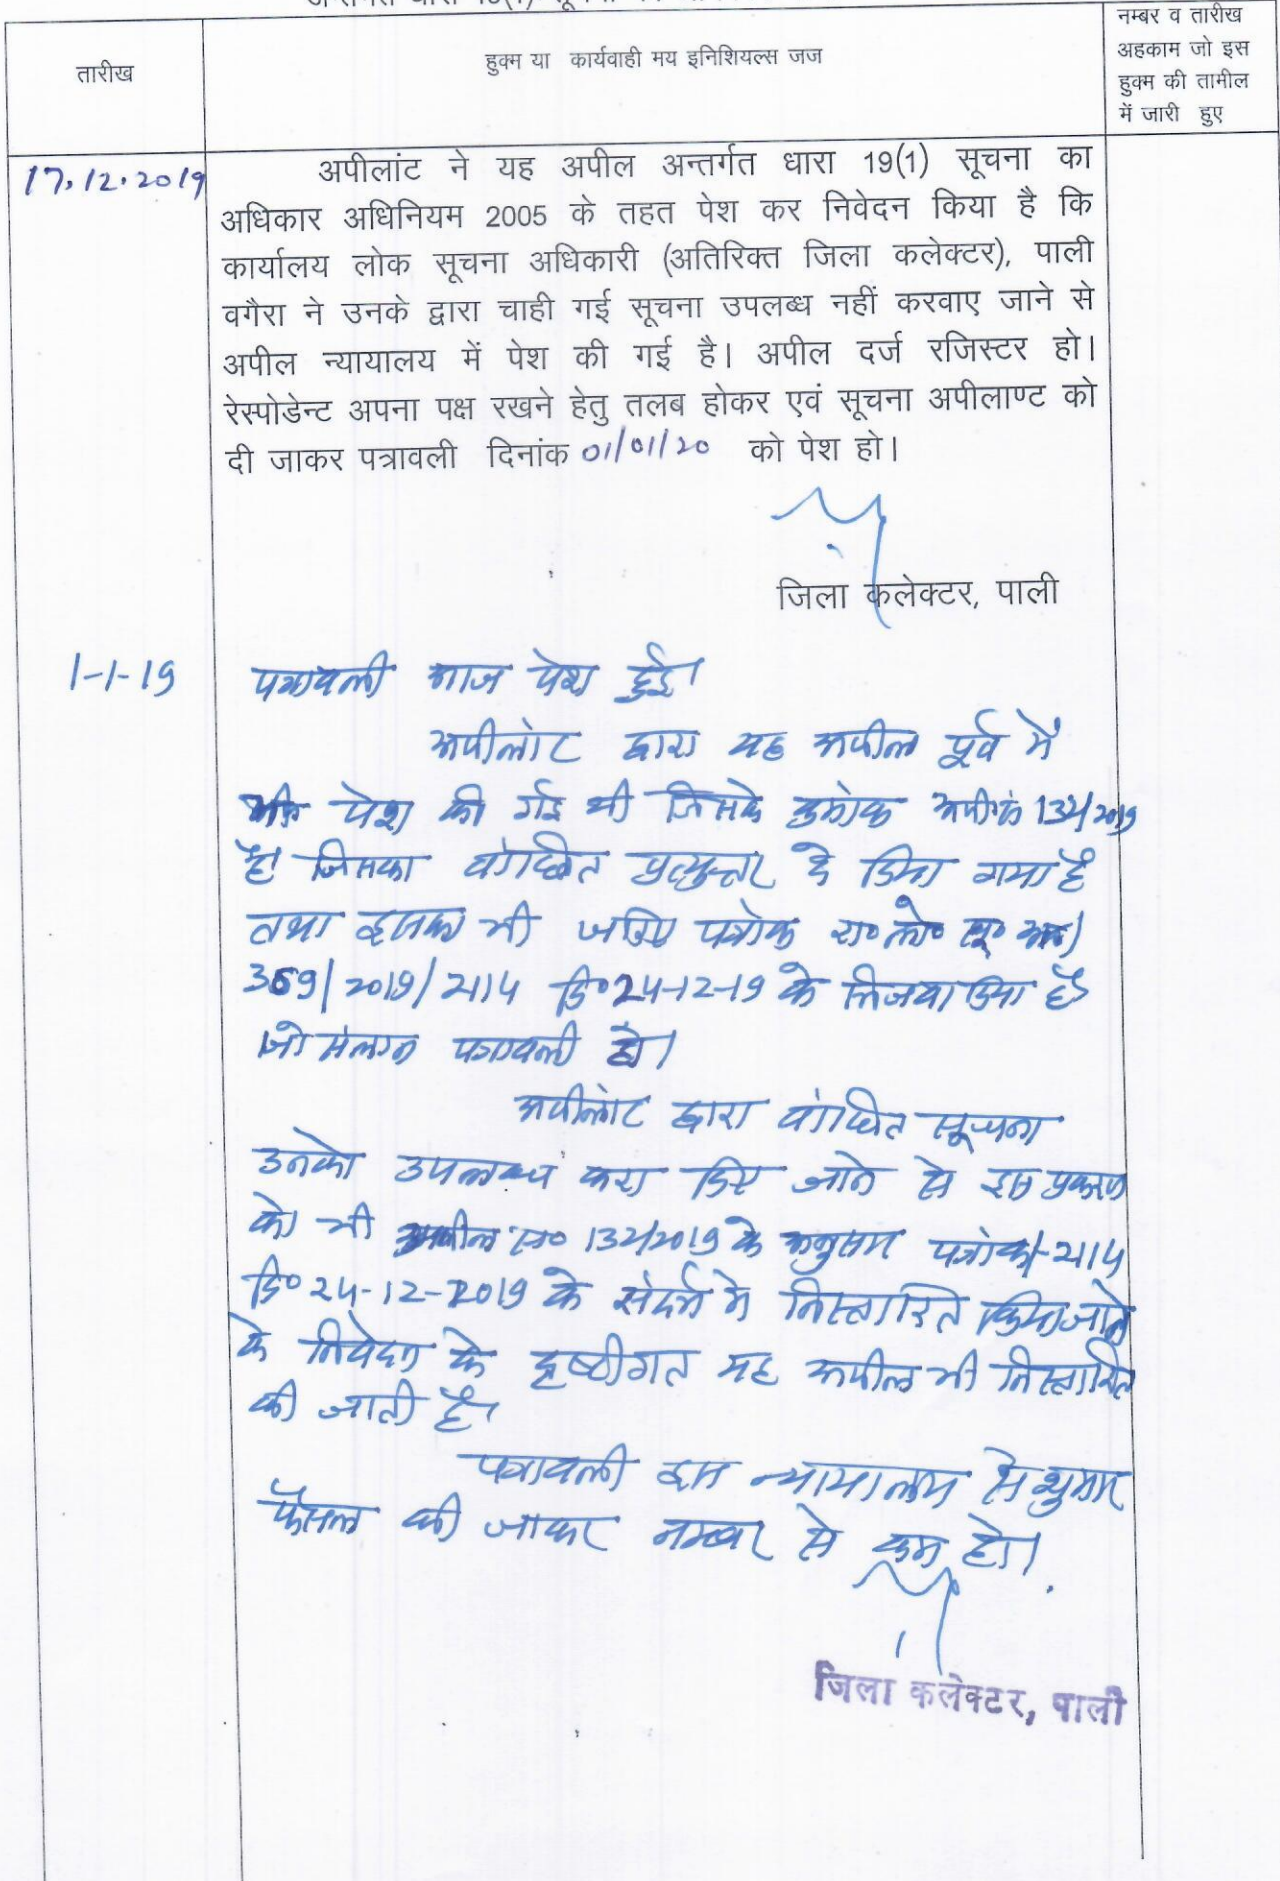 तारीख
हुक्म या कार्यवाही मय इनिशियल्स जज
नम्बर व तारीख
अहकाम जो इस
हुक्म की तामील
में जारी हुए
17.12.2019
अपीलांट ने यह अपील अन्तर्गत धारा 19(1) सूचना का
अधिकार अधिनियम 2005 के तहत पेश कर निवेदन किया है कि
कार्यालय लोक सूचना अधिकारी (अतिरिक्त जिला कलेक्टर), पाली
वगैरा ने उनके द्वारा चाही गई सूचना उपलब्ध नहीं करवाए जाने से
अपील न्यायालय में पेश की गई है। अपील दर्ज रजिस्टर हो।
रेस्पोडेन्ट अपना पक्ष रखने हेतु तलब होकर एवं सूचना अपीलाण्ट को
दी जाकर पत्रावली दिनांक 01/01/20 को पेश हो।
जिला कलेक्टर, पाली
1-1-19
पत्रावली आज पेश हुई।
अपीलांट द्वारा यह अपील पूर्व में
पेश की गई थी जिसके क्रमांक 132/2019
है। जिसका वांछित प्रत्युत्तर दे दिया गया है
तथा इसका भी जरिए पत्रांक रा० लो० सू०
369/2019/2114 दि० 24-12-19 के भिजवा दिया है
जो संलग्न पत्रावली है।
अपीलांट द्वारा वांछित सूचना
उनको उपलब्ध करा दिए जाने से इस प्रकरण
को भी अपील सं० 132/2019 के अनुसार पत्रांक 2114
दि० 24-12-2019 के संदर्भ में निस्तारित किया जाने
के निवेदन के दृष्टीगत यह अपील भी निस्तारित
की जाती है।
पत्रावली इस न्यायालय से शुमार
फैसल की जाकर नम्बर से कम हो।
जिला कलेक्टर, पाली